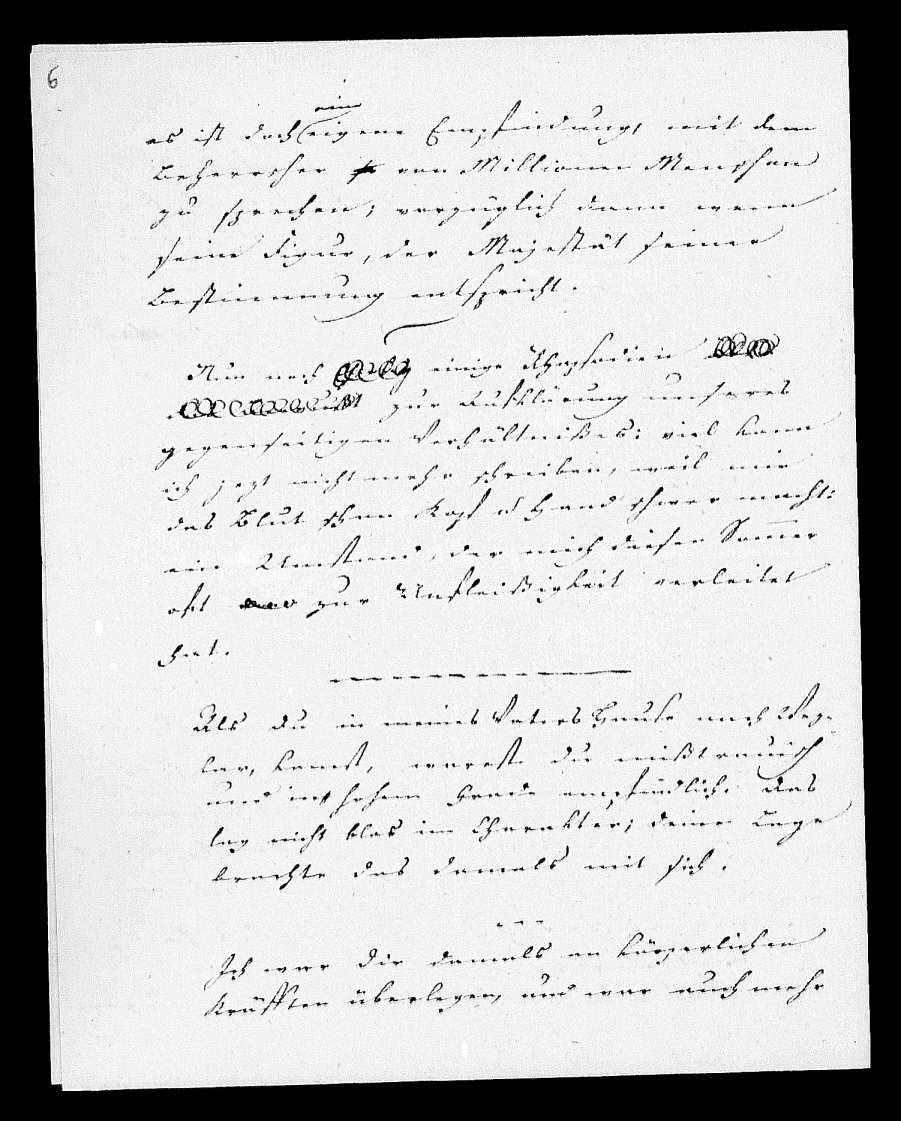 6
ein
es ist doch eigene Empfindung, mit dem
Beherrscher von Millionen Menschen
zu sprechen; vorzüglich dann wenn
seine Figur, der Majestät seiner
Bestimmung entspricht.
Nun noch einige Rhapsodien
zur Aufklärung unseres
gegenseitigen Verhältnißes: viel kann
ich jezt nicht mehr schreiben, weil mir
das Blut schon Kopf u Hand schwer macht:
ein Umstand, der mich diesen Sommer
oft zur Unfleißigkeit verleitet
hat.
Als du in meines Vaters Hause nach Wez-
lar, kamst, warest du mißtrauisch
und in hohem Grade empfindlich. Das
lag nicht blos im Charakter; deine Lage
brachte das damals mit sich.
Ich war dir damals an körperlichen
Kräfften überlegen, und war auch mehr